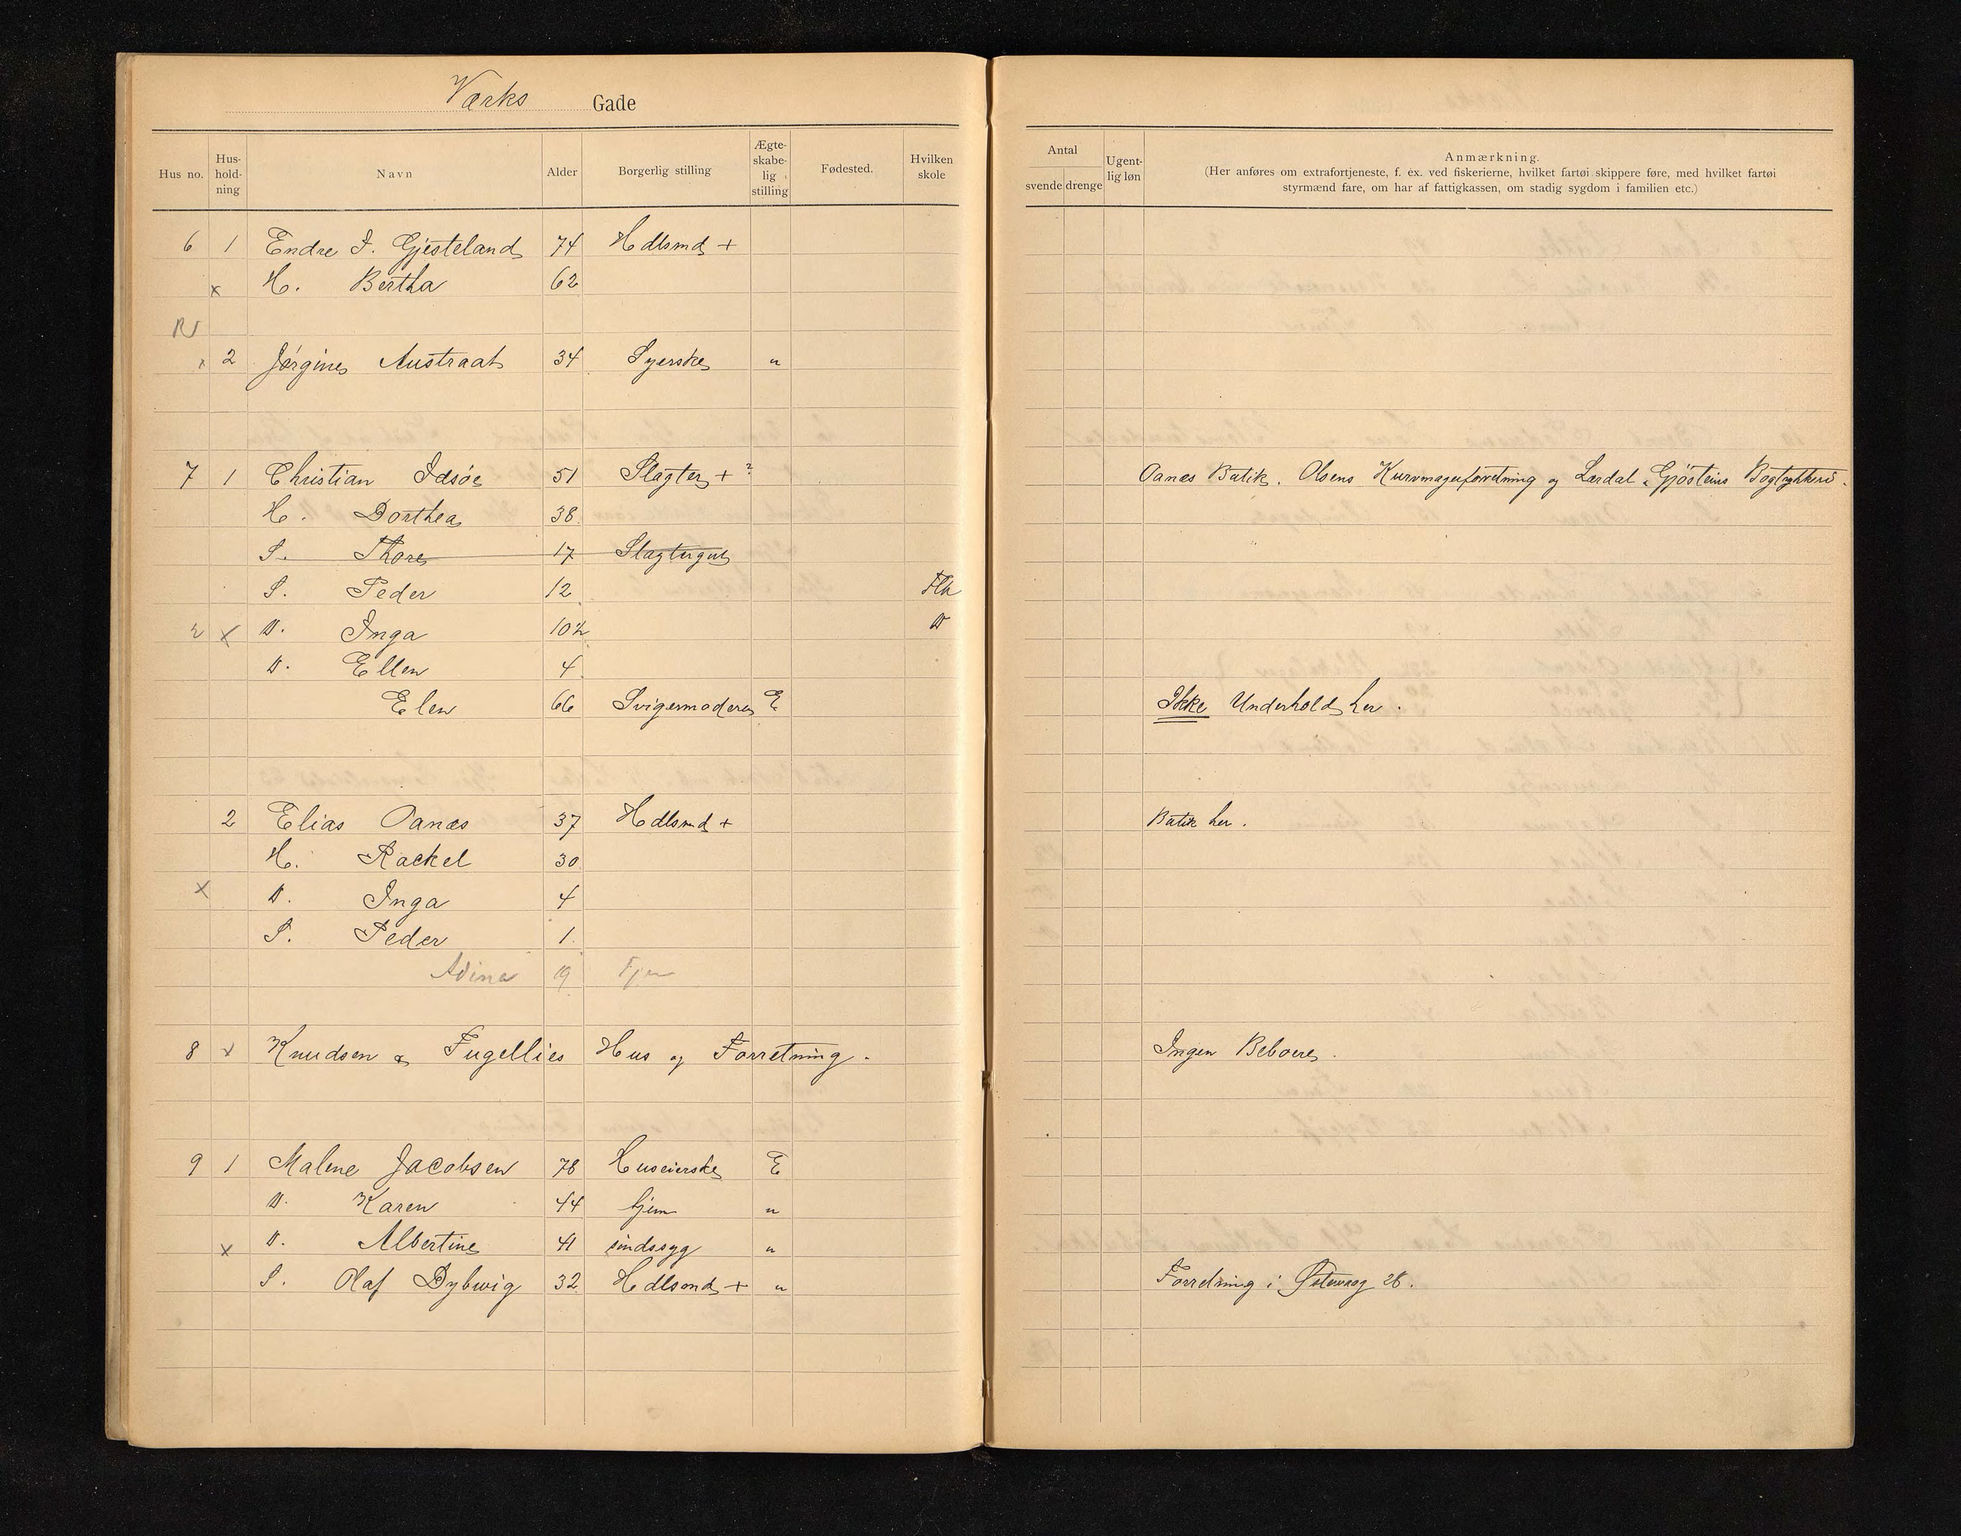 Værks Gade
Hus no. Hus-hold-ning Navn Alder Borgerlig stilling Ægte-skabe-lig stilling Fødested. Hvilken skole
Antal svende drenge Ugent-lig løn Anmærkning.
(Her anføres om extrafortjeneste, f. ex. ved fiskerierne, hvilket fartøi skippere føre, med hvilket fartøi
styrmænd fare, om har af fattigkassen, om stadig sygdom i familien etc.)
6 1 Endre I. Gjesteland 74 Hdlsmd +
x H. Bertha 62
x 2 Jørgine Austraat 34 Syerske "
7 1 Christian Idsöe 51 Slagter + ? Oanæs Butik. Olsens Kurvmagerforretning og Lærdal & Gjösteins Bogtrykkeri.
H. Dorthea 38
S. Thore 17 Slagtergut
S. Peder 12 Flk
x D. Inga 10½ D
D. Ellen 4
Elen 66 Svigermoder E Ikke Underhold her.
2 Elias Oanæs 37 Hdlsmd + Butik her.
H. Rackel 30
x D. Inga 4
S. Peder 1
Adina 19 Tjen
8 x Knudsen & Fugellies Hus og Forretning. Ingen Beboere.
9 1 Malene Jacobsen 78 Huseierske E
D. Karen 44 hjem "
x D. Albertine 41 sindssyg "
S. Olaf Dybwig 32 Hdlsmd + " Forretning i Østervaag 28.